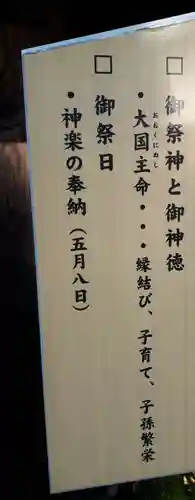 □ 御祭神と御神徳
・大国主命・・・縁結び、子育て、子孫繁栄
おおくにぬし
□ 御祭日
・神楽の奉納（五月八日）